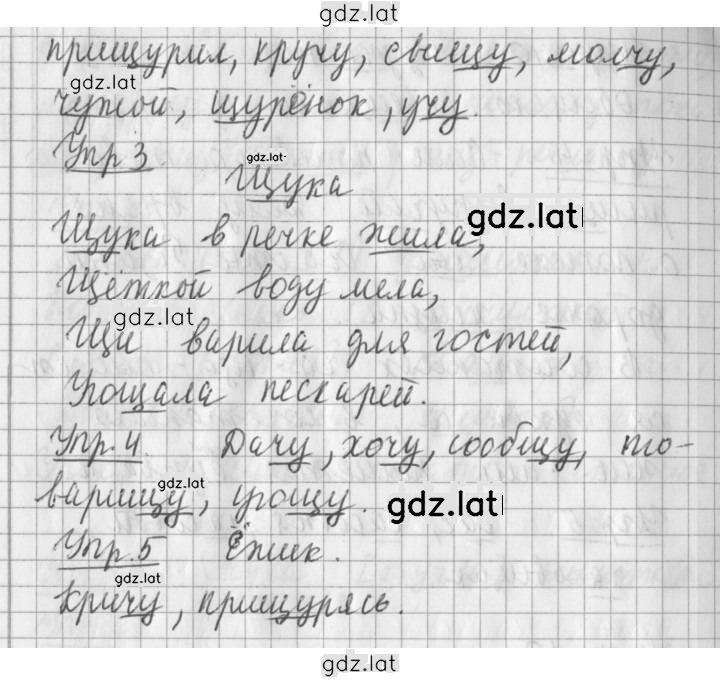 gdz.lat
прищурил, кручу, свищу, молчу,
gdz.lat
чужой, щурёнок, учу.
Упр 3
gdz.lat
Щука
gdz.lat
Щука в речке жила,
Щёткой воду мела,
gdz.lat
Щи варила для гостей,
Угощала пескарей.
Упр. 4. Дачу, хочу, сообщу, то-
gdz.lat
варищу, угощу.
gdz.lat
Упр. 5 Ёжик.
gdz.lat
Кричу, прищурясь.
gdz.lat